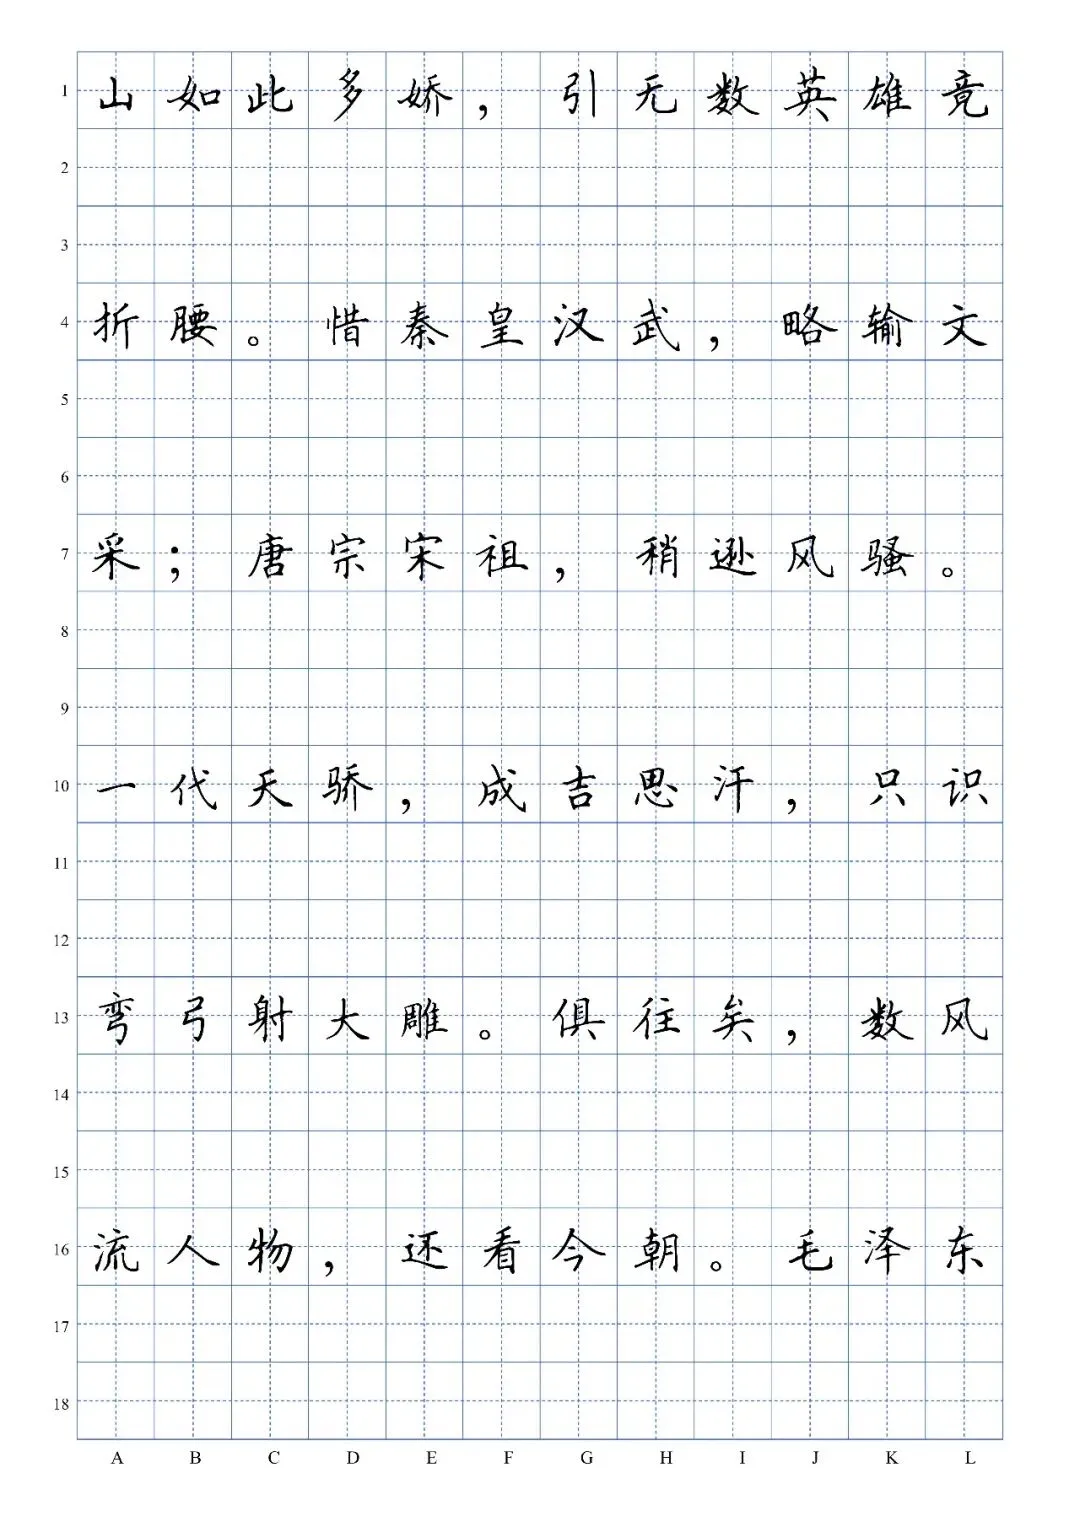 1 山如此多娇，引无数英雄竞
2
3
4 折腰。惜秦皇汉武，略输文
5
6
7 采；唐宗宋祖，稍逊风骚。
8
9
10 一代天骄，成吉思汗，只识
11
12
13 弯弓射大雕。俱往矣，数风
14
15
16 流人物，还看今朝。毛泽东
17
18
A B C D E F G H I J K L